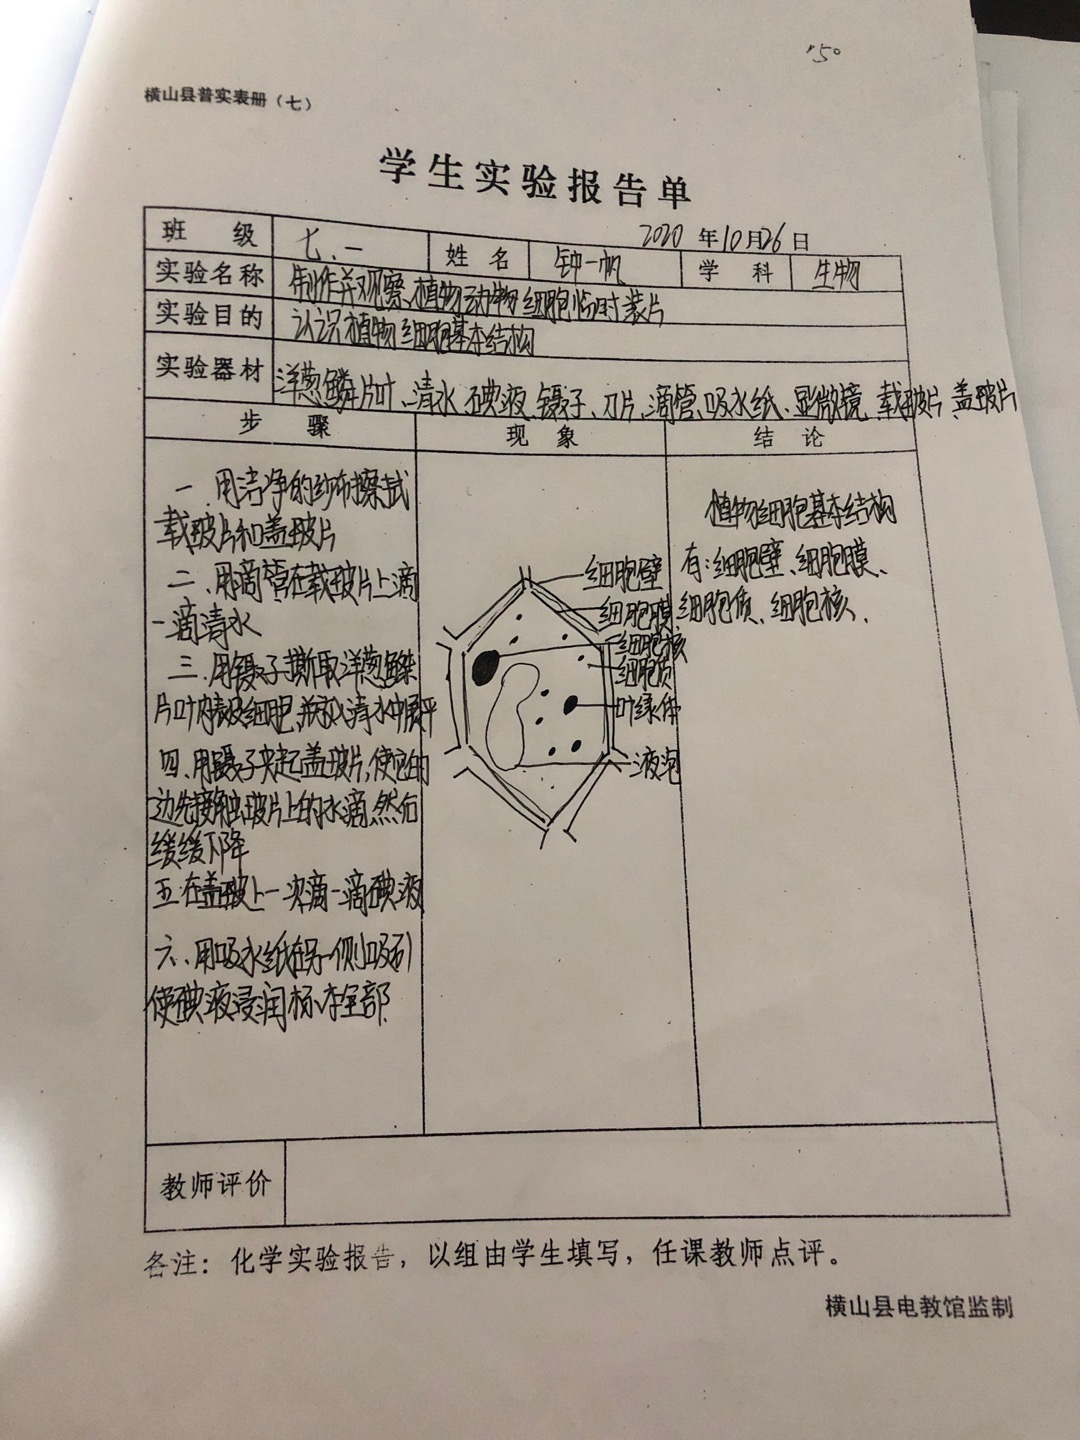 '50
横山县普实表册（七）
学生实验报告单
2020 年10月26日
班 级 七.一 姓 名 钟一帆 学 科 生物
实验名称 制作并观察植物动物细胞临时装片
实验目的 认识植物细胞基本结构
实验器材 洋葱鳞片叶、清水、碘液、镊子、刀片、滴管、吸水纸、显微镜、载玻片、盖玻片
步 骤 现 象 结 论
一、用洁净的纱布擦拭
载玻片和盖玻片
二、用滴管在载玻片上滴
一滴清水
三、用镊子撕取洋葱鳞
片叶内表皮细胞,并放入清水中展平
四、用镊子夹起盖玻片,使它的
边先接触玻片上的水滴,然后
缓缓下降
五.在盖玻上一次滴一滴碘液
六、用吸水纸在另一侧吸引
使碘液浸润标本全部
细胞壁
细胞膜
细胞核
细胞质
叶绿体
液泡
植物细胞基本结构
有:细胞壁、细胞膜、
细胞质、细胞核、
教师评价
各注：化学实验报告，以组由学生填写，任课教师点评。
横山县电教馆监制